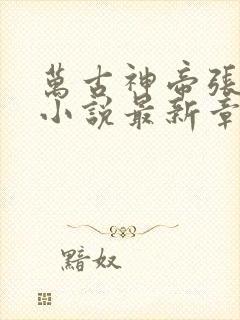 萬古神帝張
小說最新章
黯奴